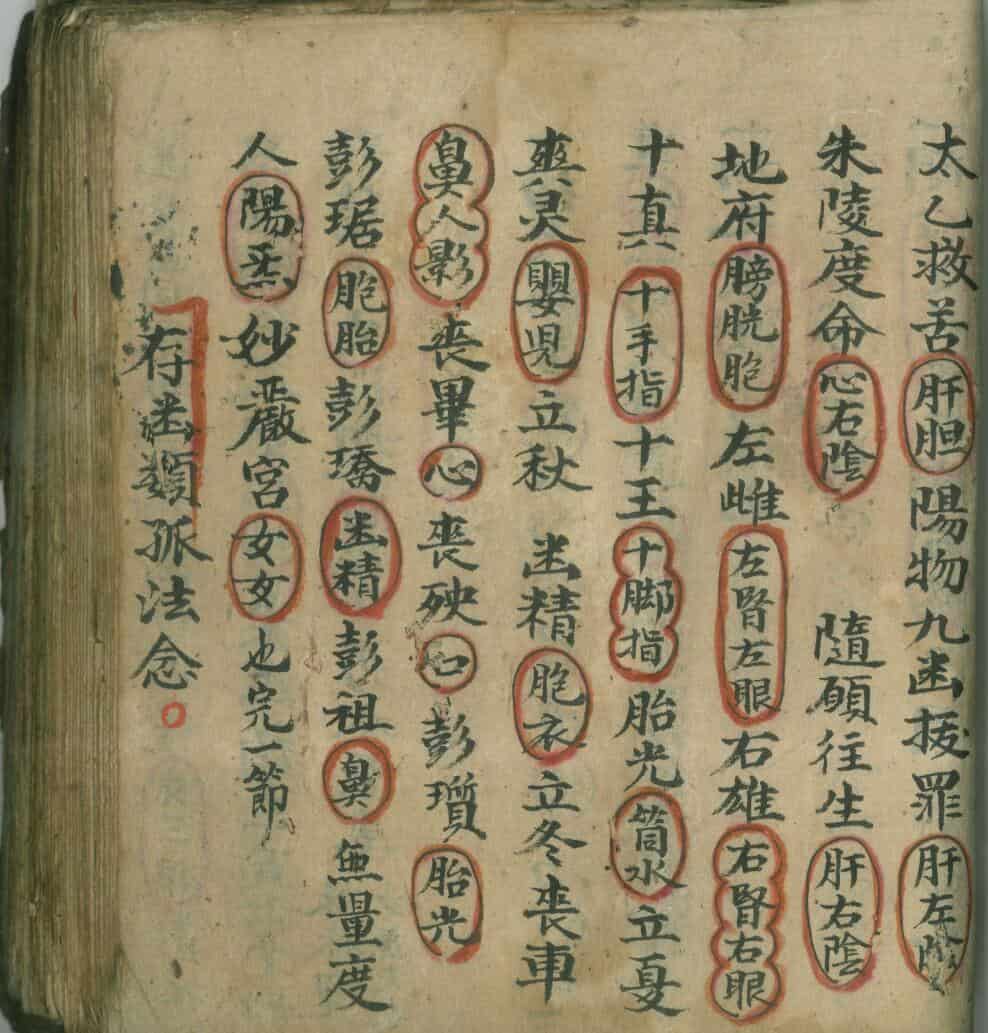 太乙救苦肝胆陽物九幽拔罪肝左陰
朱陵度命心右陰隨願往生肝右陰
地府膀胱胞左雌左腎左眼右雄右腎右眼
十真十手指十王十脚指胎光筒水立夏
爽灵嬰児立秋幽精胞衣立冬喪車
鼻人影喪畢心喪殃口彭瓆胎光
彭琚胞胎彭瑀幽精彭祖鼻無量度
人陽炁妙嚴宮女女也完一節
存幽類孤法念